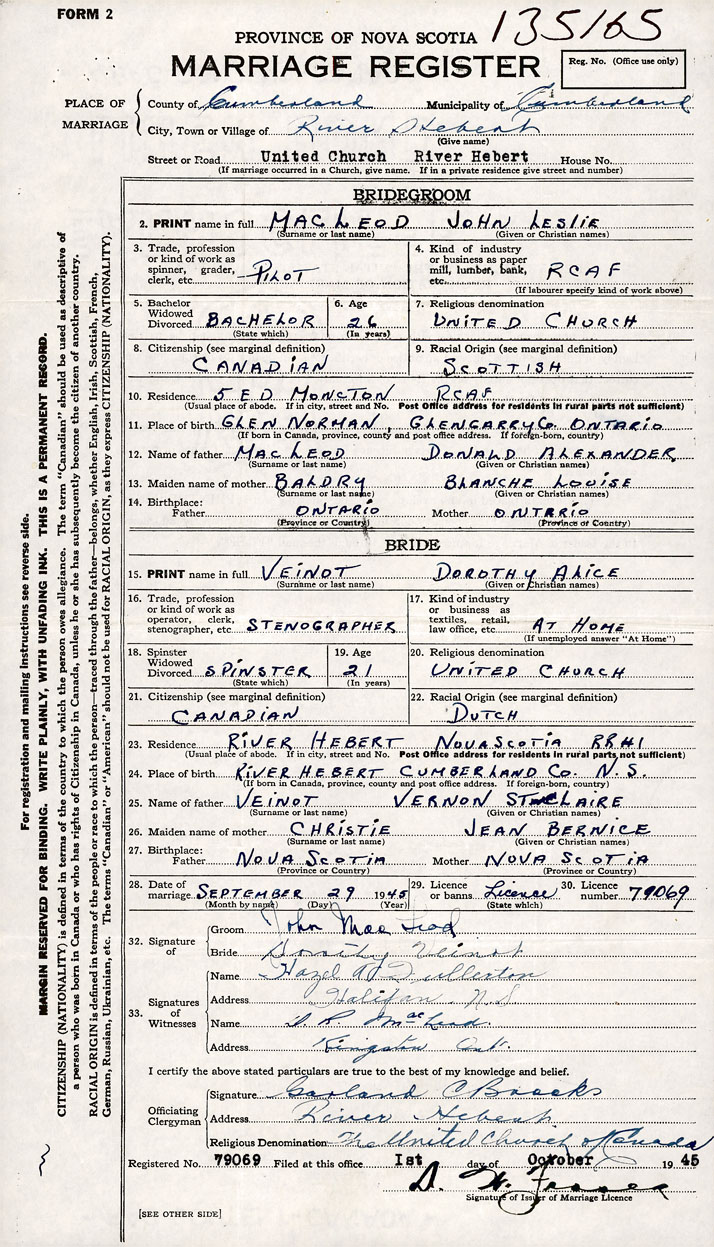 FORM 2
135165
PROVINCE OF NOVA SCOTIA
MARRIAGE REGISTER
Reg. No. (Office use only)
PLACE OF MARRIAGE
County of Cumberland Municipality of Cumberland
City, Town or Village of River Hebert
(Give name)
Street or Road United Church River Hebert House No.
(If marriage occurred in a Church, give name. If in a private residence give street and number)
BRIDEGROOM
2. PRINT name in full MACLEOD JOHN LESLIE
(Surname or last name) (Given or Christian names)
3. Trade, profession or kind of work as spinner, grader, clerk, etc. PILOT
4. Kind of industry or business as paper mill, lumber, bank, etc. RCAF
(If labourer specify kind of work above)
5. Bachelor Widowed Divorced BACHELOR (State which)
6. Age 26 (In years)
7. Religious denomination UNITED CHURCH
8. Citizenship (see marginal definition) CANADIAN
9. Racial Origin (see marginal definition) SCOTTISH
10. Residence 5 E D MONCTON RCAF
(Usual place of abode. If in city, street and No. Post Office address for residents in rural parts not sufficient)
11. Place of birth GLEN NORMAN, GLENGARRY Co. ONTARIO
(If born in Canada, province, county and post office address. If foreign-born, country)
12. Name of father MACLEOD DONALD ALEXANDER
(Surname or last name) (Given or Christian names)
13. Maiden name of mother BALDRY BLANCHE LOUISE
(Surname or last name) (Given or Christian names)
14. Birthplace:
Father ONTARIO Mother ONTARIO
(Province or Country) (Province or Country)
BRIDE
15. PRINT name in full VEINOT DOROTHY ALICE
(Surname or last name) (Given or Christian names)
16. Trade, profession or kind of work as operator, clerk, stenographer, etc STENOGRAPHER
17. Kind of industry or business as textiles, retail, law office, etc. AT HOME
(If unemployed answer "At Home")
18. Spinster Widowed Divorced SPINSTER (State which)
19. Age 21 (In years)
20. Religious denomination UNITED CHURCH
21. Citizenship (see marginal definition) CANADIAN
22. Racial Origin (see marginal definition) DUTCH
23. Residence RIVER HEBERT NOVA SCOTIA RR#1
(Usual place of abode. If in city, street and No. Post Office address for residents in rural parts not sufficient)
24. Place of birth RIVER HEBERT CUMBERLAND Co. N.S.
(If born in Canada, province, county and post office address. If foreign-born, country)
25. Name of father VEINOT VERNON ST CLAIRE
(Surname or last name) (Given or Christian names)
26. Maiden name of mother CHRISTIE JEAN BERNICE
(Surname or last name) (Given or Christian names)
27. Birthplace:
Father NOVA SCOTIA Mother NOVA SCOTIA
(Province or Country) (Province or Country)
28. Date of marriage SEPTEMBER 29 1945
(Month by name) (Day) (Year)
29. Licence or banns License (State which)
30. Licence number 79069
32. Signature of
Groom John MacLeod
Bride Dorothy Veinot
33. Signatures of Witnesses
Name Hazel Fullerton
Address Halifax N.S
Name MacLeod
Address Kingston Ont.
I certify the above stated particulars are true to the best of my knowledge and belief.
Officiating Clergyman
Signature Garland C Brooks
Address River Hebert
Religious Denomination The United Church of Canada
Registered No. 79069 Filed at this office Ist day of October 1945
Signature of Issuer of Marriage Licence
[SEE OTHER SIDE]
For registration and mailing instructions see reverse side.
MARGIN RESERVED FOR BINDING. WRITE PLAINLY, WITH UNFADING INK. THIS IS A PERMANENT RECORD.
CITIZENSHIP (NATIONALITY) is defined in terms of the country to which the person owes allegiance. The term "Canadian" should be used as descriptive of
a person who was born in Canada or who has rights of Citizenship in Canada, unless he or she has subsequently become the citizen of another country.
RACIAL ORIGIN is defined in terms of the people or race to which the person—traced through the father—belongs, whether English, Irish, Scottish, French,
German, Russian, Ukrainian, etc. The terms "Canadian" or "American" should not be used for RACIAL ORIGIN, as they express CITIZENSHIP (NATIONALITY).